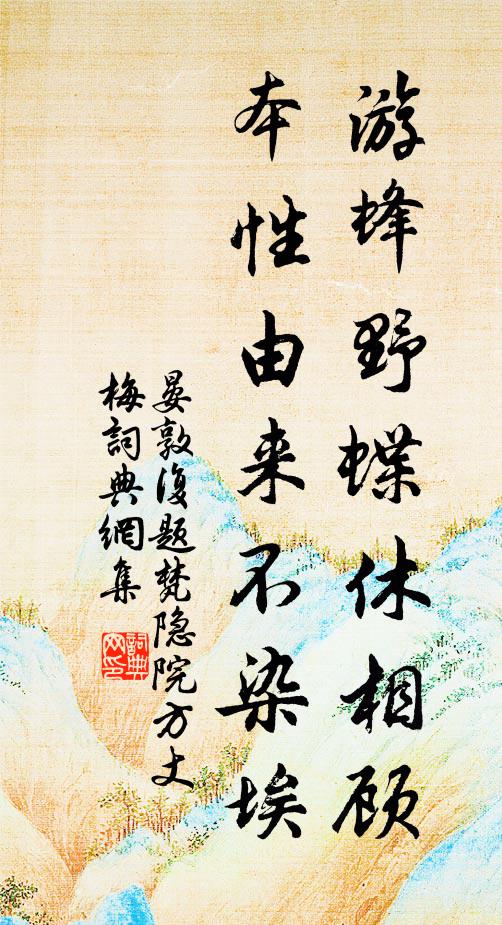 游蜂野蝶休相顾
本性由来不染埃
晏敦復题梵隐院方丈
梅詞典網集
詞典网印